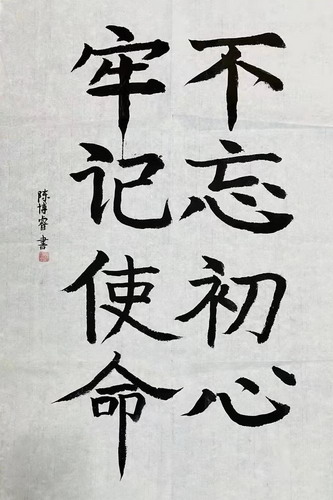 不忘初心
牢记使命
陈博睿書